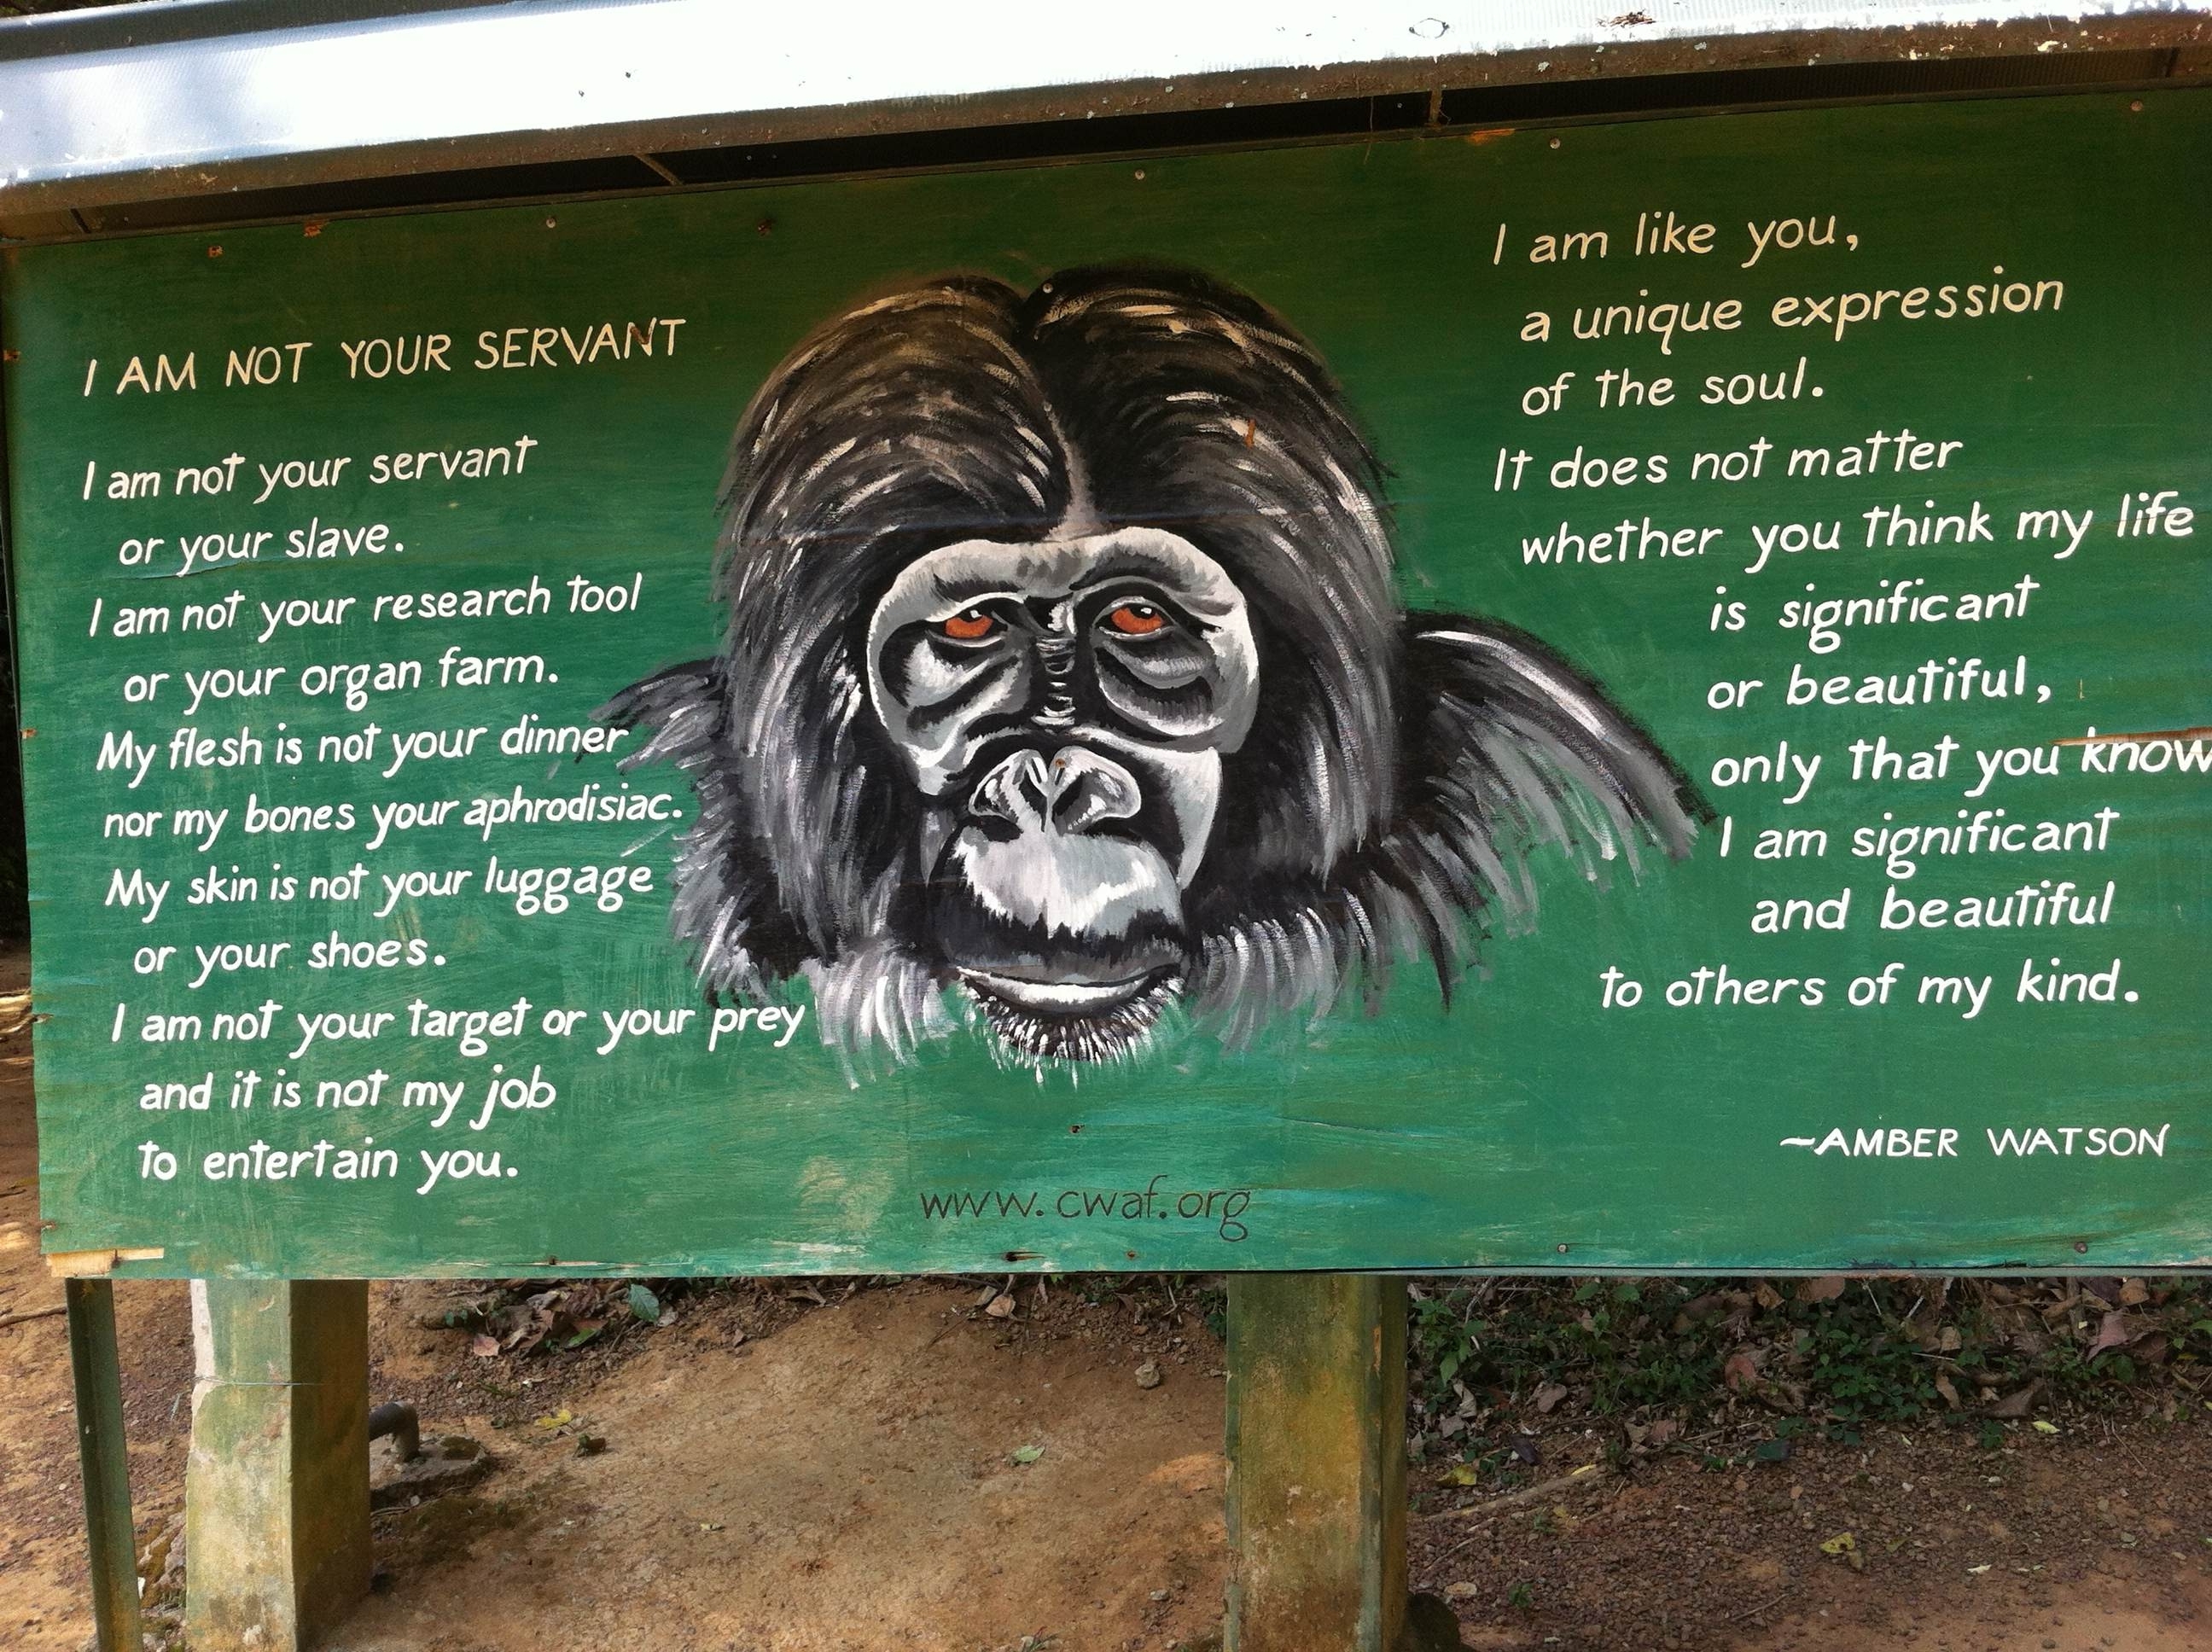 I AM NOT YOUR SERVANT
I am not your servant
or your slave.
I am not your research tool
or your organ farm.
My flesh is not your dinner
nor my bones your aphrodisiac.
My skin is not your luggage
or your shoes.
I am not your target or your prey
and it is not my job
to entertain you.
I am like you,
a unique expression
of the soul.
It does not matter
whether you think my life
is significant
or beautiful,
only that you know
I am significant
and beautiful
to others of my kind.
~AMBER WATSON
www.cwaf.org